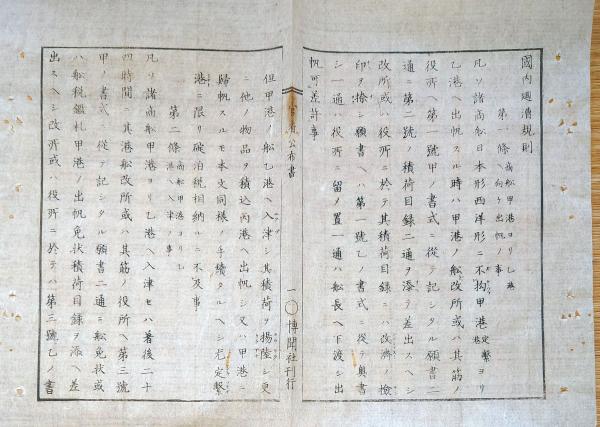 國内廻漕規則
第一條 商船甲港ヨリ乙港
へ向ケ出帆ノ事
凡ソ諸商船日本形西洋形ニ不拘甲港定繫港ヨリ
乙港ヘ出帆スル時ハ甲港ノ舩改所或ハ其筋ノ
役所ヘ第一號甲ノ書式ニ從テ記シタル願書二
通ニ第二號ノ積荷目録二通ヲ添テ差出スヘシ
改所或ハ役所ニ於テ其積荷目録ニハ改濟ノ檢
印ヲ捺シ願書ヘハ第一號乙ノ書式ニ從テ奥書
シ一通ハ役所ニ留メ置一通ハ舩長ヘ下渡シ出
帆可差許事
公布書
一〇博聞社刊行
但甲港ノ舩乙港ヘ入津シ其積荷ヲ揚陸シ更
ニ他ノ物品ヲ積込丙港ヘ出帆シ又ハ甲港ニ
歸帆スルモ本文同様ノ手續タルヘシ尤定繫
港ニ限リ碇泊税相納ルニ不及事
第二條 商船甲港ヨリ乙
港ヘ入津ノ事
凡ソ諸商舩甲港ヨリ乙港ヘ入津セハ著後二十
四時間ニ其港舩改所或ハ其筋ノ役所ヘ第三號
甲ノ書式ニ從テ記シタル願書二通ニ舩免狀或
ハ舩税鑑札甲港ノ出帆免狀積荷目録ヲ添ヘ差
出スヘシ改所或ハ役所ニ於テハ第三號乙ノ書